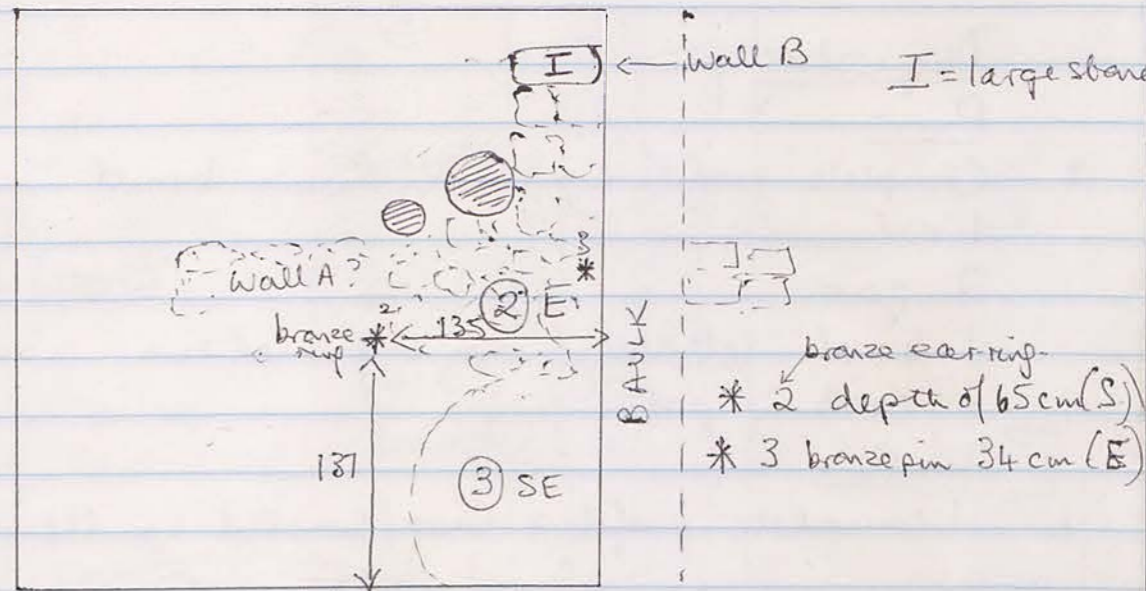 I
Wall B
I = large stone
Wall A?
3
*
2 E
2
bronze ring
*
135
BAULK
bronze ear-ring
* 2 depth of 65 cm (S)
* 3 bronze pin 34 cm (E)
137
3 SE